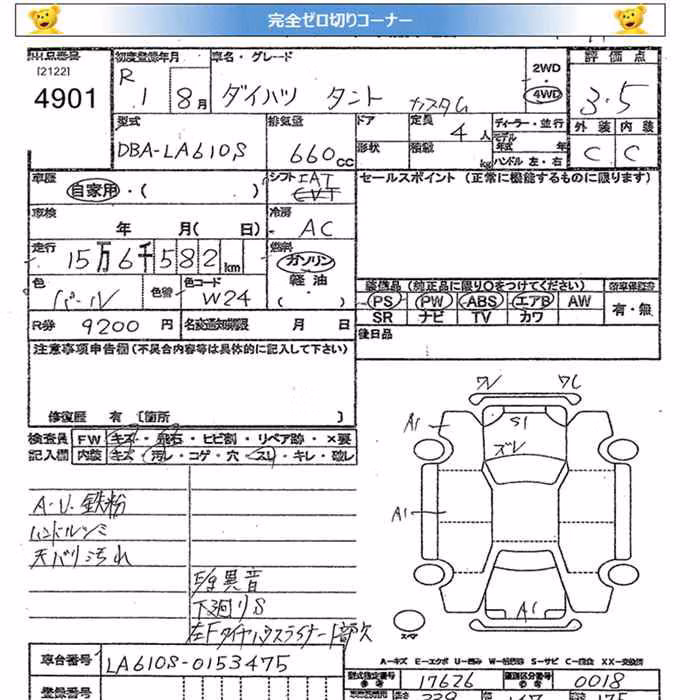 完全ゼロ切りコーナー
出品番号 初度登録年月 車名・グレード 2WD 評価点
[2122]
4901 R 1 8月 ダイハツ タント カスタム ・4WD 3.5
型式 排気量 ドア 定員 4人 ディーラー・並行 外装 内装
DBA-LA610S 660cc 形状 積載 kg モデル年式 年式 C C
ハンドル 左・右
車歴 自家用・( ) シフト IAT CVT セールスポイント (正常に機能するものに限ります)
車検 年 月( 日) 冷房 AC
走行 15万6千582km 燃料 ガソリン
軽油
・( )
色 パール 色替 色コード W24 装備品 (純正品に限り○をつけてください)
PS PW ABS エアB AW 有・無
SR ナビ TV カワ
R券 9200円 名変通知期限 月 日 後日品
注意事項申告欄(不具合内容等は具体的に記入して下さい)
修復歴 有 [箇所 ]
検査員 FW キズ・飛石・ヒビ割・リペア跡・×要
記入欄 内装 キズ・汚レ・コゲ・穴・スレ・キレ・破レ
ワレ ワレ
A1 S1
ズレ
A1
A1
スペア
A・U・鉄粉
ハンドルシミ
天バリ汚れ
下廻りS
A-キズ E-エクボ U-凹み W-補修跡 S-サビ C-腐食 XX-交換済
車台番号 LA610S-0153475
型式指定番号 17626 類別区分番号 0018
登録番号